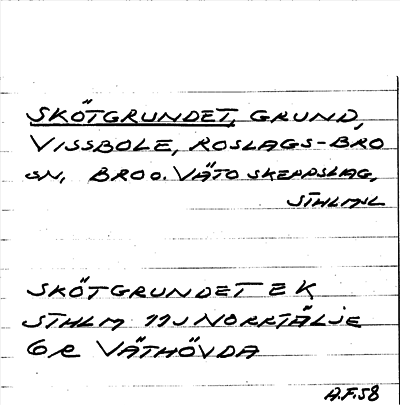 SKÖTGRUNDET, GRUND,
VISSBOLE, ROSLAGS-BRO
SN, BRO O. VÄTÖ SKEPPSLAG,
STHLM L
SKÖTGRUNDET EK
STHLM 11J NORRTÄLJE
GR VÄTHÖVDA
A.F. 58